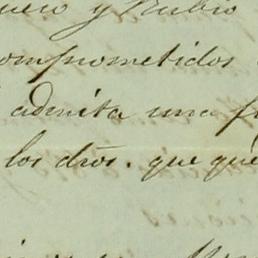 y Rubio
comprometidos
admita una
los dros. que que